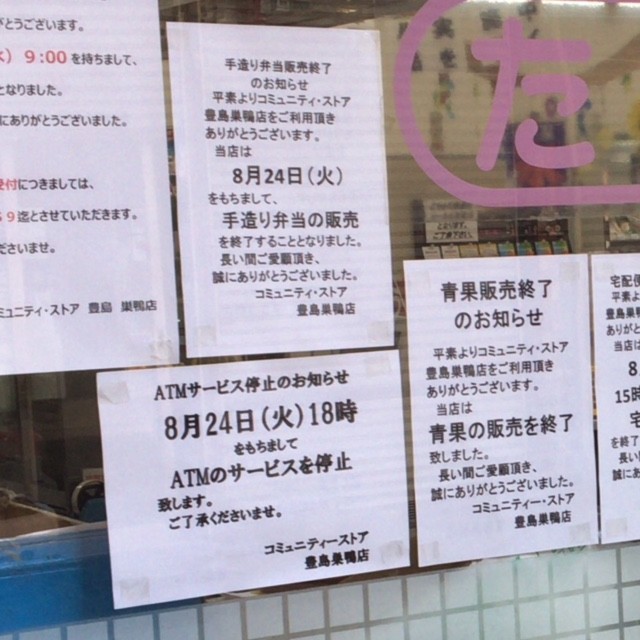 がとうございます。
9:00を持ちまして、
となりました。
にありがとうございました。
受付につきましては、
59迄とさせていただきます。
ださいませ。
ミュニティ・ストア 豊島 巣鴨店
手造り弁当販売終了
のお知らせ
平素よりコミュニティ・ストア
豊島巣鴨店をご利用頂き
ありがとうございます。
当店は
8月24日(火)
をもちまして、
手造り弁当の販売
を終了することとなりました。
長い間ご愛顧頂き、
誠にありがとうございました。
コミュニティ・ストア
豊島巣鴨店
た
ATMサービス停止のお知らせ
8月24日(火)18時
をもちまして
ATMのサービスを停止
致します。
ご了承くださいませ。
コミュニティーストア
豊島巣鴨店
青果販売終了
のお知らせ
平素よりコミュニティ・ストア
豊島巣鴨店をご利用頂き
ありがとうございます。
当店は
青果の販売を終了
致しました。
長い間ご愛顧頂き、
誠にありがとうございました。
コミュニティー・ストア
豊島巣鴨店
宅配便
平素よ
豊島巣鴨
ありがとう
当店は
8
15時
宅
を終了
長い間
誠にあり